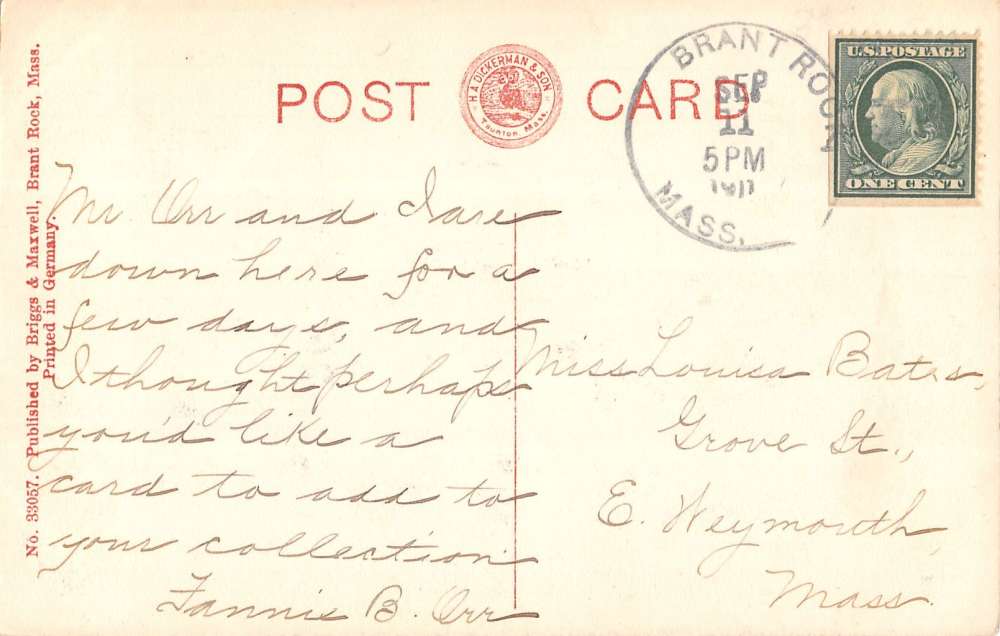 No. 33057. Published by Briggs & Maxwell, Brant Rock, Mass.
Printed in Germany.
POST CARD
H. A. DICKERMAN & SON
Taunton, Mass.
BRANT ROCK
SEP
11
5 PM
1911
MASS.
U.S. POSTAGE
ONE CENT
Mr. Orr and I are
down here for a
few days, and
I thought perhaps
you'd like a
card to add to
your collection
Fannie B. Orr
Miss Louisa Bates,
Grove St.,
E. Weymouth,
Mass.